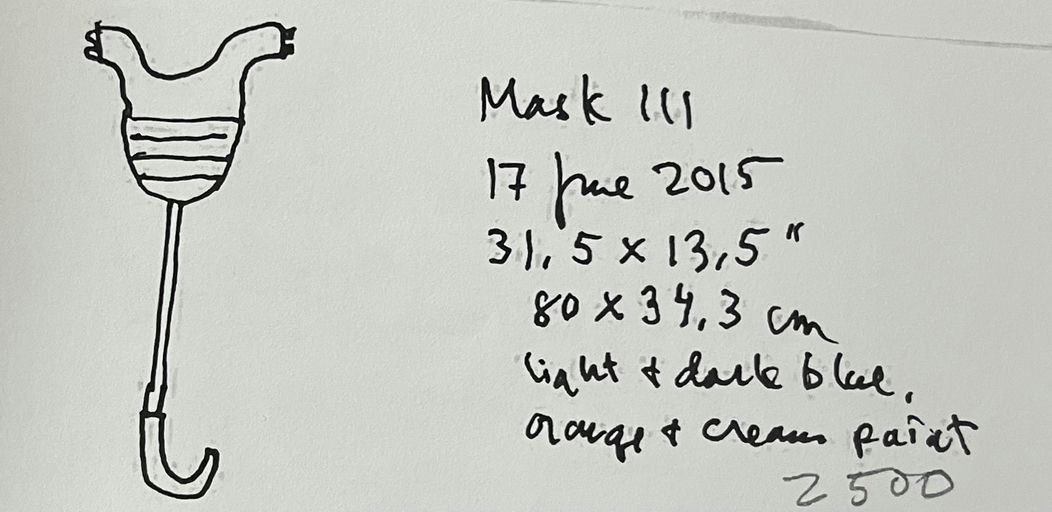 Mask III
17 June 2015
31,5 x 13,5"
80 x 34,3 cm
light + dark blue,
orange + cream paint
2500